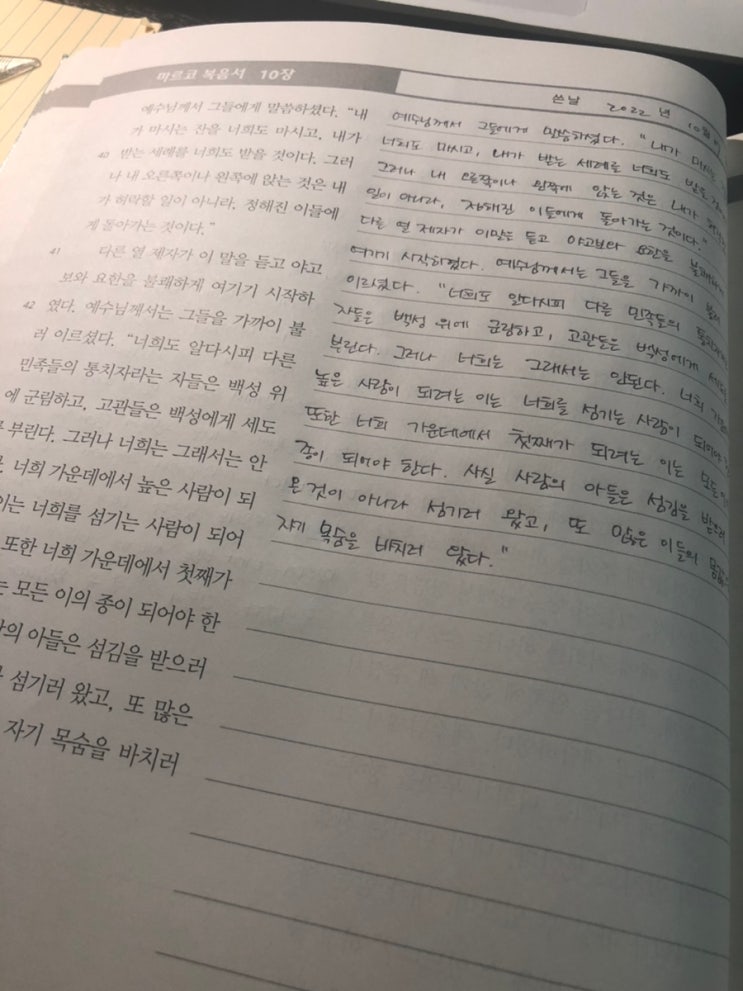 마르코 복음서 10장
예수님께서 그들에게 말씀하셨다. “내
가 마시는 잔을 너희도 마시고, 내가
40 받는 세례를 너희도 받을 것이다. 그러
나 내 오른쪽이나 왼쪽에 앉는 것은 내
가 허락할 일이 아니라, 정해진 이들에
게 돌아가는 것이다.”
41 다른 열 제자가 이 말을 듣고 야고
보와 요한을 불쾌하게 여기기 시작하
42 였다. 예수님께서는 그들을 가까이 불
러 이르셨다. “너희도 알다시피 다른
민족들의 통치자라는 자들은 백성 위
에 군림하고, 고관들은 백성에게 세도
부린다. 그러나 너희는 그래서는 안
너희 가운데에서 높은 사람이 되
너희를 섬기는 사람이 되어
또한 너희 가운데에서 첫째가
모든 이의 종이 되어야 한
아들은 섬김을 받으러
섬기러 왔고, 또 많은
자기 목숨을 바치러
쓴날 2022 년 10월
예수님께서 그들에게 말씀하셨다. “내가
너희도 마시고, 내가 받는 세례를 너희도 받을
그러나 내 오른쪽이나 왼쪽에 앉는 것은 내가
일이 아니라, 정해진 이들에게 돌아가는 것이다.”
다른 열 제자가 이말을 듣고 야고보와 요한을
여기기 시작하였다. 예수님께서는 그들을 가까이 불러
이르셨다. “너희도 알다시피 다른 민족들의
자들은 백성 위에 군림하고, 고관들은 백성에게
부린다. 그러나 너희는 그래서는 안된다. 너희
높은 사람이 되려는 이는 너희를 섬기는 사람이 되어야
또한 너희 가운데에서 첫째가 되려는 이는 모든
종이 되어야 한다. 사실 사람의 아들은 섬김을 받으러
온것이 아니라 섬기러 왔고, 또 많은 이들의
자기 목숨을 바치러 왔다.”